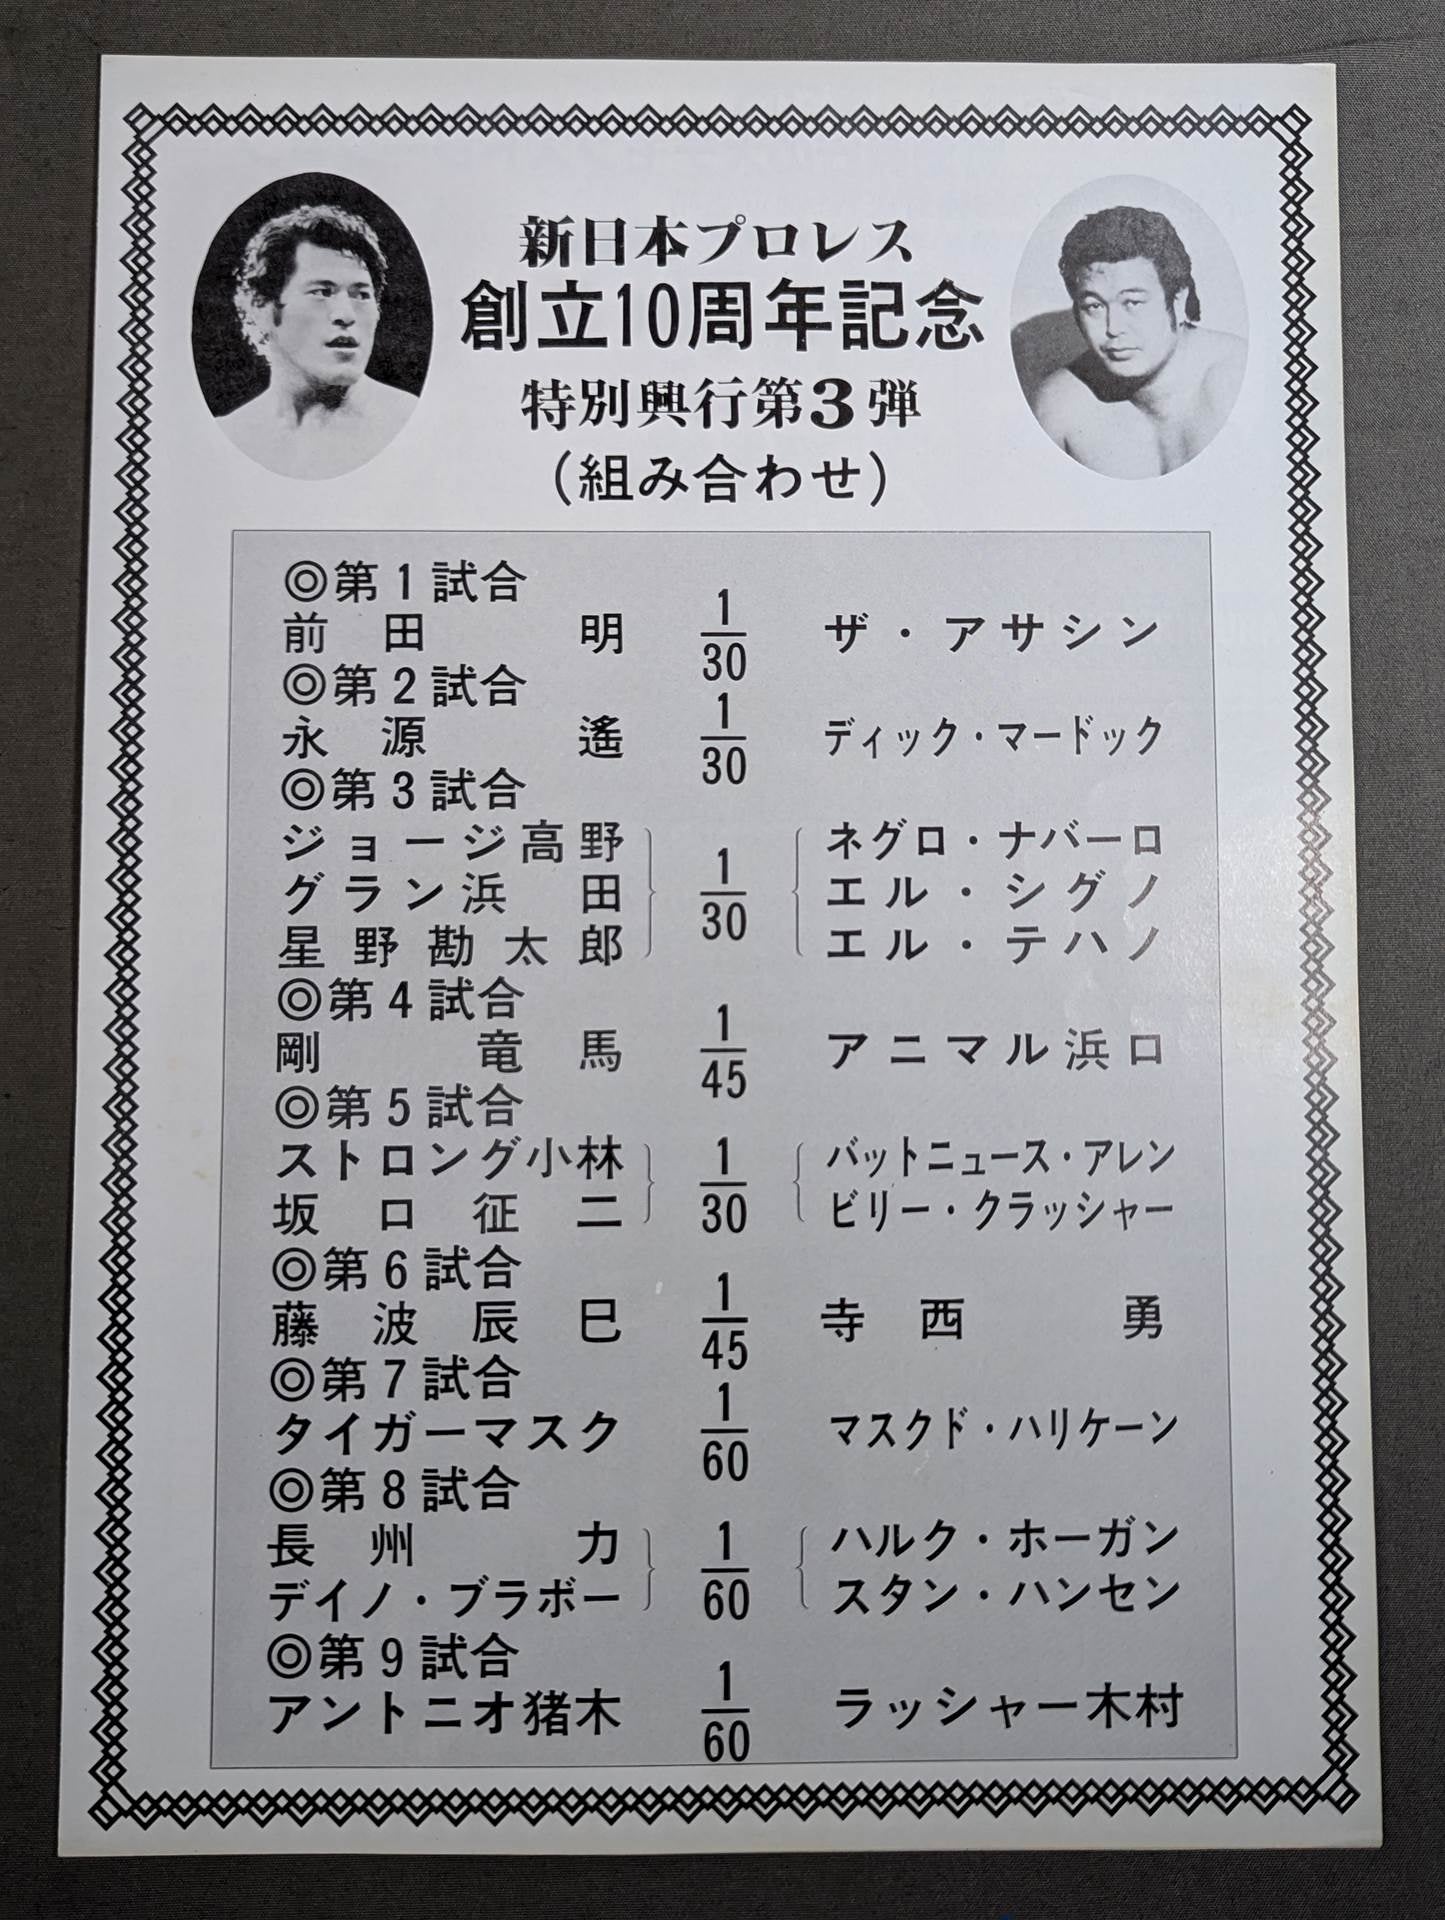 新日本プロレス
創立10周年記念
特別興行第3弾
(組み合わせ)
◎第1試合
前田明 1/30 ザ・アサシン
◎第2試合
永源遙 1/30 ディック・マードック
◎第3試合
ジョージ高野 ネグロ・ナバーロ
グラン浜田 1/30 エル・シグノ
星野勘太郎 エル・テハノ
◎第4試合
剛竜馬 1/45 アニマル浜口
◎第5試合
ストロング小林 1/30 バットニュース・アレン
坂口征二 ビリー・クラッシャー
◎第6試合
藤波辰巳 1/45 寺西勇
◎第7試合
タイガーマスク 1/60 マスクド・ハリケーン
◎第8試合
長州力 1/60 ハルク・ホーガン
デイノ・ブラボー スタン・ハンセン
◎第9試合
アントニオ猪木 1/60 ラッシャー木村